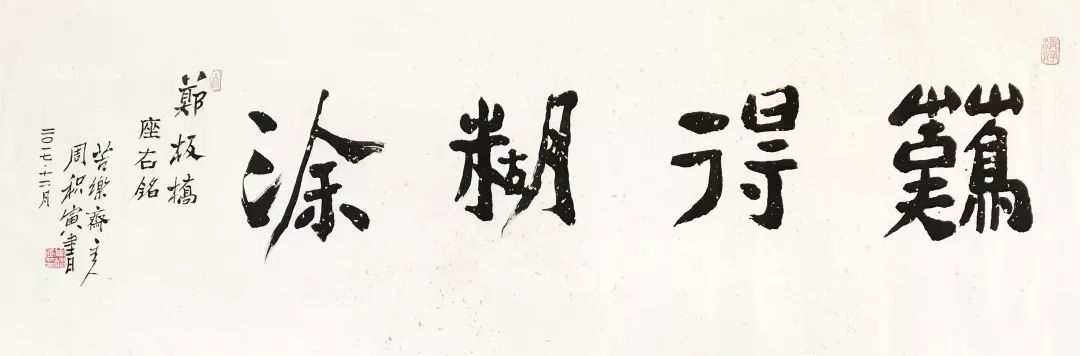 難得糊涂
鄭板橋
座右銘
苦樂齋主人
周积寅書
二〇一七